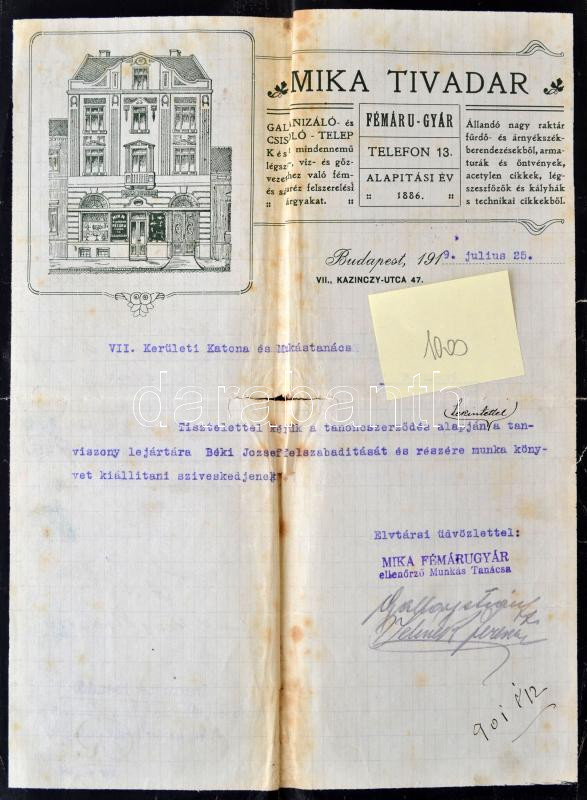 MIKA TIVADAR
GALVANIZÁLÓ- és
CSISZOLÓ - TELEP
mindennemű
légszesz, viz- és gőz-
vezetékhez való fém-
és sárgaréz felszerelési
:: tárgyakat. ::
FÉMÁRU-GYÁR
TELEFON 13.
ALAPITÁSI ÉV
:: 1886. ::
Állandó nagy raktár
fürdő- és árnyékszék-
berendezésekből, arma-
turák és öntvények,
acetylen cikkek, lég-
szeszfőzők és kályhák
s technikai cikkekből.
Budapest, 1919. julius 25.
VII., KAZINCZY-UTCA 47.
1200
VII. Kerületi Katona és Munkástanács
darabanth
tekintettel
Tisztelettel kérjük a tanoncszerződés alapján a tan-
viszony lejártára Béki Jozsef felszabaditását és részére munka köny-
vet kiállitani sziveskedjenek
Elvtársi üdvözlettel:
MIKA FÉMÁRUGYÁR
ellenőrző Munkás Tanácsa